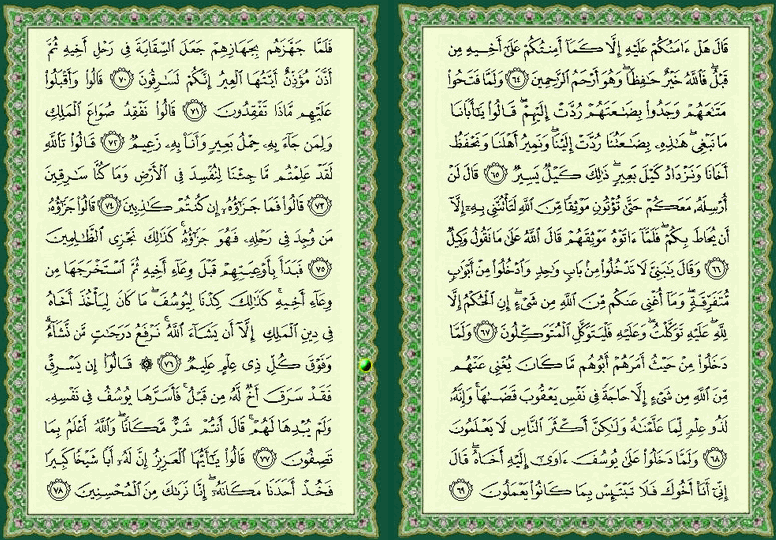 قَالَ هَلْ ءَامَنُكُمْ عَلَيْهِ إِلَّا كَمَآ أَمِنتُكُمْ عَلَىٰٓ أَخِيهِ مِن
قَبْلُ ۖ فَٱللَّهُ خَيْرٌ حَٰفِظًا ۖ وَهُوَ أَرْحَمُ ٱلرَّٰحِمِينَ ﴿٦٤﴾ وَلَمَّا فَتَحُوا۟
مَتَٰعَهُمْ وَجَدُوا۟ بِضَٰعَتَهُمْ رُدَّتْ إِلَيْهِمْ ۖ قَالُوا۟ يَٰٓأَبَانَا
مَا نَبْغِى ۖ هَٰذِهِۦ بِضَٰعَتُنَا رُدَّتْ إِلَيْنَا ۖ وَنَمِيرُ أَهْلَنَا وَنَحْفَظُ
أَخَانَا وَنَزْدَادُ كَيْلَ بَعِيرٍ ۖ ذَٰلِكَ كَيْلٌ يَسِيرٌ ﴿٦٥﴾ قَالَ لَنْ
أُرْسِلَهُۥ مَعَكُمْ حَتَّىٰ تُؤْتُونِ مَوْثِقًا مِّنَ ٱللَّهِ لَتَأْتُنَّنِى بِهِۦٓ إِلَّآ
أَن يُحَاطَ بِكُمْ ۖ فَلَمَّآ ءَاتَوْهُ مَوْثِقَهُمْ قَالَ ٱللَّهُ عَلَىٰ مَا نَقُولُ وَكِيلٌ
﴿٦٦﴾ وَقَالَ يَٰبَنِىَّ لَا تَدْخُلُوا۟ مِنۢ بَابٍ وَٰحِدٍ وَٱدْخُلُوا۟ مِنْ أَبْوَٰبٍ
مُّتَفَرِّقَةٍ ۖ وَمَآ أُغْنِى عَنكُم مِّنَ ٱللَّهِ مِن شَىْءٍ ۖ إِنِ ٱلْحُكْمُ إِلَّا
لِلَّهِ ۖ عَلَيْهِ تَوَكَّلْتُ ۖ وَعَلَيْهِ فَلْيَتَوَكَّلِ ٱلْمُتَوَكِّلُونَ ﴿٦٧﴾ وَلَمَّا
دَخَلُوا۟ مِنْ حَيْثُ أَمَرَهُمْ أَبُوهُم مَّا كَانَ يُغْنِى عَنْهُم
مِّنَ ٱللَّهِ مِن شَىْءٍ إِلَّا حَاجَةً فِى نَفْسِ يَعْقُوبَ قَضَىٰهَا ۚ وَإِنَّهُۥ
لَذُو عِلْمٍ لِّمَا عَلَّمْنَٰهُ وَلَٰكِنَّ أَكْثَرَ ٱلنَّاسِ لَا يَعْلَمُونَ
﴿٦٨﴾ وَلَمَّا دَخَلُوا۟ عَلَىٰ يُوسُفَ ءَاوَىٰٓ إِلَيْهِ أَخَاهُ ۖ قَالَ
إِنِّىٓ أَنَا۠ أَخُوكَ فَلَا تَبْتَئِسْ بِمَا كَانُوا۟ يَعْمَلُونَ ﴿٦٩﴾
فَلَمَّا جَهَّزَهُم بِجَهَازِهِمْ جَعَلَ ٱلسِّقَايَةَ فِى رَحْلِ أَخِيهِ ثُمَّ
أَذَّنَ مُؤَذِّنٌ أَيَّتُهَا ٱلْعِيرُ إِنَّكُمْ لَسَٰرِقُونَ ﴿٧٠﴾ قَالُوا۟ وَأَقْبَلُوا۟
عَلَيْهِم مَّاذَا تَفْقِدُونَ ﴿٧١﴾ قَالُوا۟ نَفْقِدُ صُوَاعَ ٱلْمَلِكِ
وَلِمَن جَآءَ بِهِۦ حِمْلُ بَعِيرٍ وَأَنَا۠ بِهِۦ زَعِيمٌ ﴿٧٢﴾ قَالُوا۟ تَٱللَّهِ
لَقَدْ عَلِمْتُم مَّا جِئْنَا لِنُفْسِدَ فِى ٱلْأَرْضِ وَمَا كُنَّا سَٰرِقِينَ
﴿٧٣﴾ قَالُوا۟ فَمَا جَزَٰٓؤُهُۥٓ إِن كُنتُمْ كَٰذِبِينَ ﴿٧٤﴾ قَالُوا۟ جَزَٰٓؤُهُۥ
مَن وُجِدَ فِى رَحْلِهِۦ فَهُوَ جَزَٰٓؤُهُۥ ۚ كَذَٰلِكَ نَجْزِى ٱلظَّٰلِمِينَ
﴿٧٥﴾ فَبَدَأَ بِأَوْعِيَتِهِمْ قَبْلَ وِعَآءِ أَخِيهِ ثُمَّ ٱسْتَخْرَجَهَا مِن
وِعَآءِ أَخِيهِ ۚ كَذَٰلِكَ كِدْنَا لِيُوسُفَ ۖ مَا كَانَ لِيَأْخُذَ أَخَاهُ
فِى دِينِ ٱلْمَلِكِ إِلَّآ أَن يَشَآءَ ٱللَّهُ ۚ نَرْفَعُ دَرَجَٰتٍ مَّن نَّشَآءُ ۗ
وَفَوْقَ كُلِّ ذِى عِلْمٍ عَلِيمٌ ﴿٧٦﴾ ۞ قَالُوٓا۟ إِن يَسْرِقْ
فَقَدْ سَرَقَ أَخٌ لَّهُۥ مِن قَبْلُ ۚ فَأَسَرَّهَا يُوسُفُ فِى نَفْسِهِۦ
وَلَمْ يُبْدِهَا لَهُمْ ۚ قَالَ أَنتُمْ شَرٌّ مَّكَانًا ۖ وَٱللَّهُ أَعْلَمُ بِمَا
تَصِفُونَ ﴿٧٧﴾ قَالُوا۟ يَٰٓأَيُّهَا ٱلْعَزِيزُ إِنَّ لَهُۥٓ أَبًا شَيْخًا كَبِيرًا
فَخُذْ أَحَدَنَا مَكَانَهُۥٓ ۖ إِنَّا نَرَىٰكَ مِنَ ٱلْمُحْسِنِينَ ﴿٧٨﴾